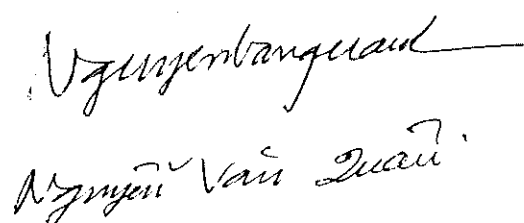 Nguyenvanquan
Nguyễn Văn Quân